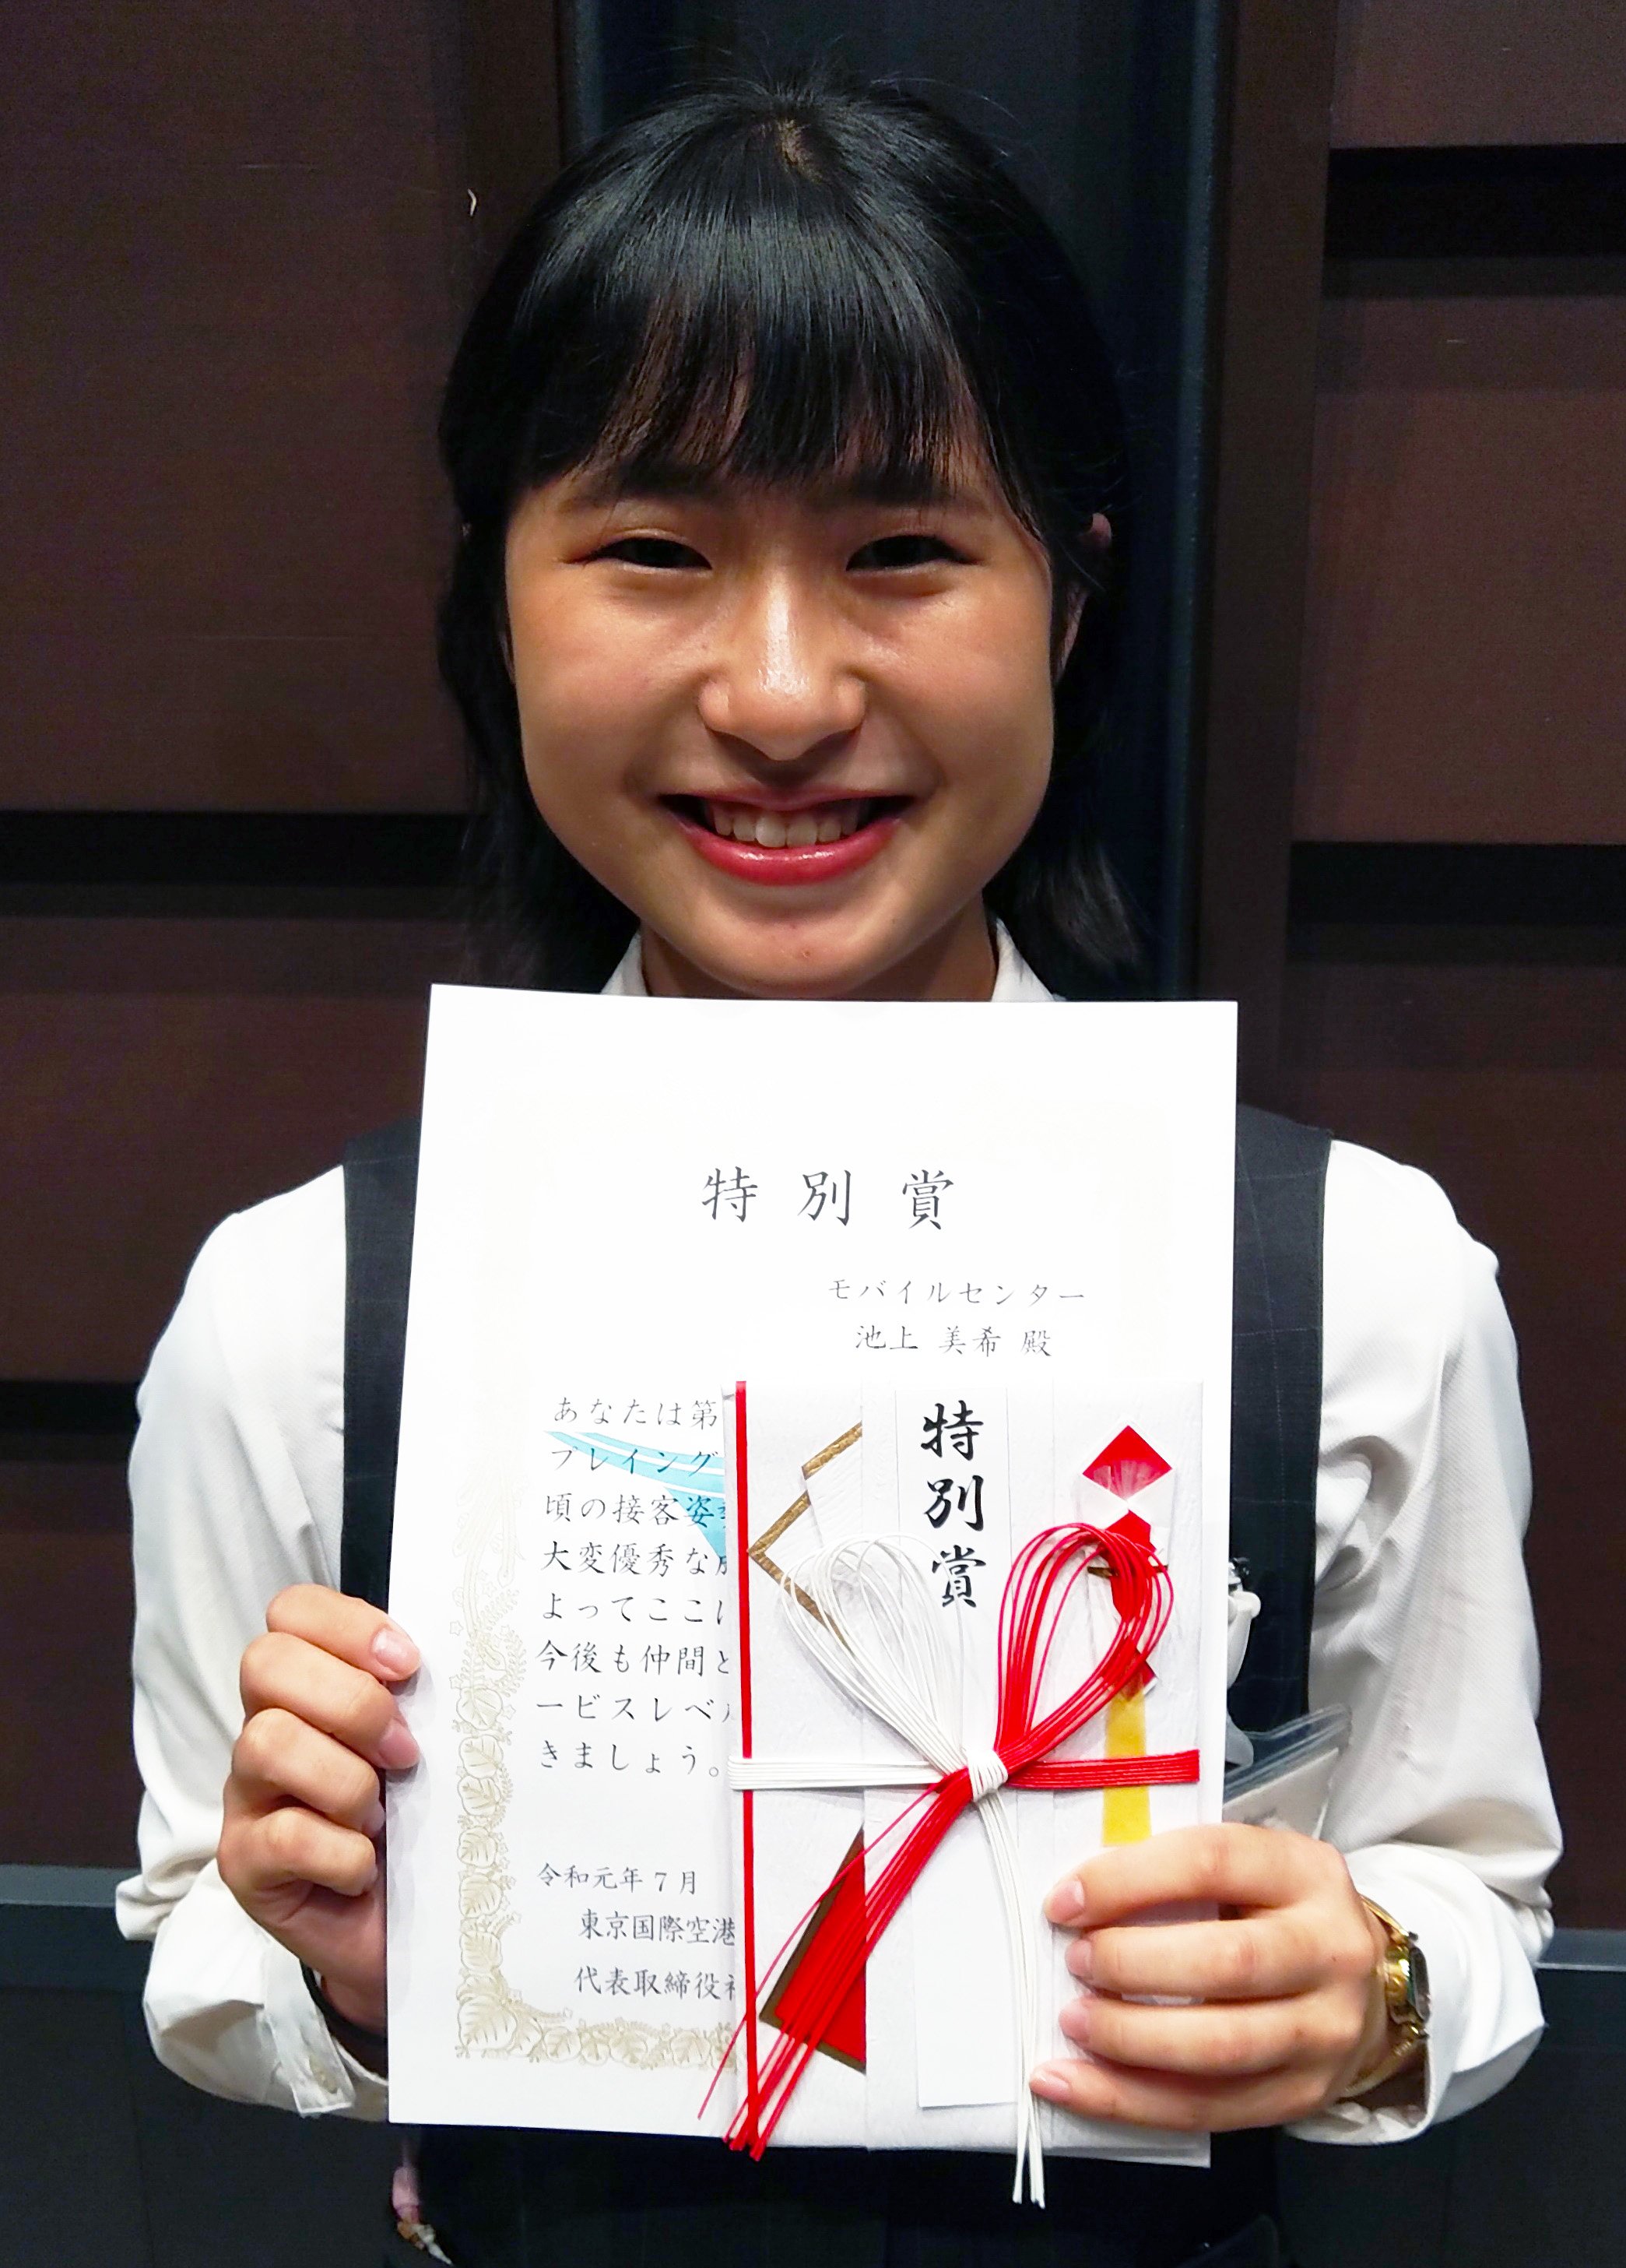 特別賞
モバイルセンター
池上 美希 殿
あなたは第
プレイング
頃の接客姿
大変優秀な
よってここ
今後も仲間と
ービスレベ
きましょう。
令和元年7月
東京国際空港
代表取締役
特別賞